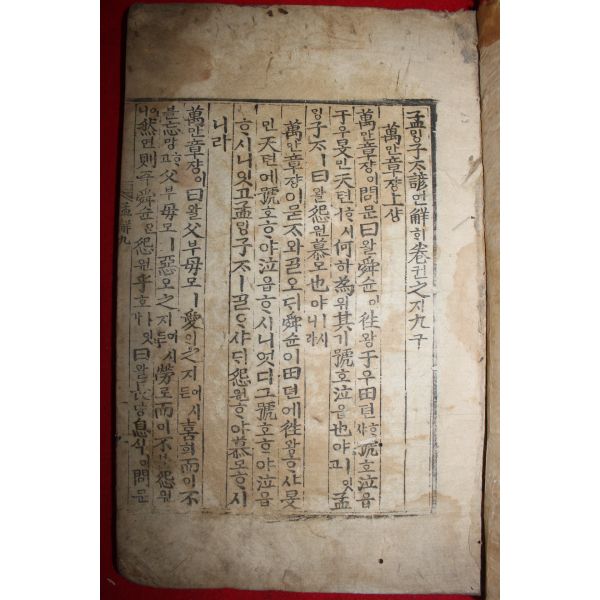 孟ᄆᆡᆼ子ᄌᆞ諺언解ᄒᆡ卷권之지九구
萬만章쟝上샹
萬만章쟝이問문曰왈舜슌이徃왕于우田뎐ᄒᆞ샤號호泣읍
于우旻민天텬ᄒᆞ시니何하爲위其기號호泣읍也야ㅣ잇고孟
ᄆᆡᆼ子ᄌᆞㅣ曰왈怨원慕모也야ㅣ시니라
萬만章쟝이묻ᄌᆞ와ᄀᆞᆯ오ᄃᆡ舜슌이田뎐에徃왕ᄒᆞ샤旻
민天텬에號호ᄒᆞ야泣읍ᄒᆞ시니엇디그號호ᄒᆞ야泣읍
ᄒᆞ시니잇고孟ᄆᆡᆼ子ᄌᆞㅣᄀᆞᆯᄋᆞ샤ᄃᆡ怨원ᄒᆞ야慕모ᄒᆞ시
니라
萬만章쟝이曰왈父부母모ㅣ愛ᄋᆡ之지어시든喜희而이不
블忘망ᄒᆞ고父부母모ㅣ惡오之지어시든勞로而이不블怨원
이니然연則즉舜슌은怨원乎호ㅣ잇가曰왈長댱息식이問문
孟解九